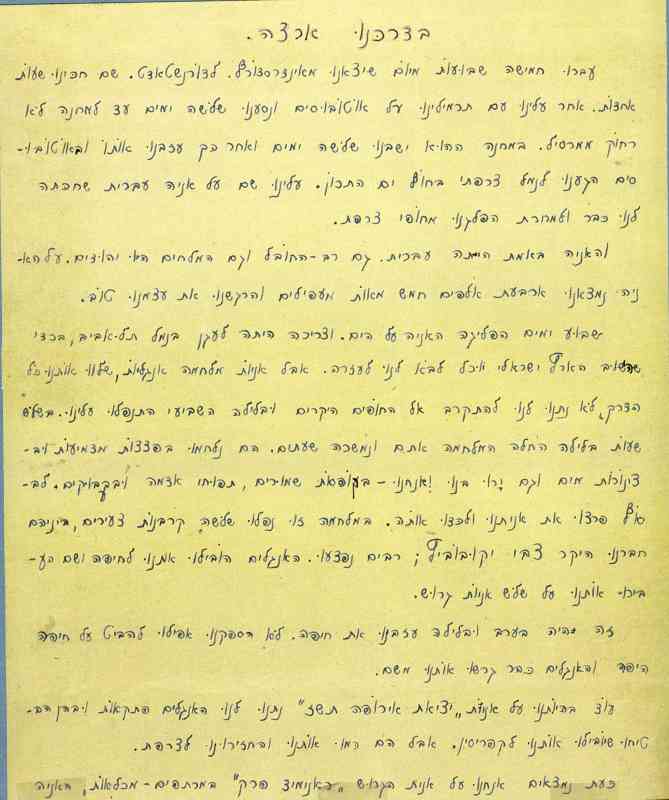 בדרכנו ארצה.
עברו חמישה שבועות מיום שיצאנו מאינדרסדורף. לדורנשטאדט. שם חכינו שעות
אחדות. אחר עלינו עם תרמילינו על אוטובוסים ונסענו שלושה ימים עד למחנה לא
רחוק ממרסיל. במחנה ההוא ישבנו שלושה ימים ואחר כך עזבנו אותו ובאוטובו-
סים הגענו לנמל צרפתי בחוף ים התכון. עלינו שם על אניה עברית שחכתה
לנו כבר ולמחרת הפלגנו מחופי צרפת.
והאניה באמת היתה עברית. גם רב-החובל וגם המלחים היו יהודים. על הא-
ניה נמצאנו ארבעת אלפים חמש מאות מעפילים והרגשנו את עצמנו טוב.
שבוע ימים הפליגה האניה על הים. וצריכה היתה לעגן בנמל תל-אביב, בכדי
הארץ ישראלי יוכל לבא לנו לעזרה. אבל אניות מלחמה אנגליות, שלוו אותנו כל
הדרך, לא נתנו לנו להתקרב אל החופים היקרים ובלילה השביעי התנפלו עלינו. בשלש
שעות בלילה החלה המלחמה אתם ונמשכה שעתים. הם נלחמו בפצצות מדמיעות וב-
צינורות מים וגם ירו בנו ואנחנו - בקופסאות שמורים, תפוחי אדמה ובקבוקים. לב-
סוף פרצו את אניתנו ולכדו אותה. במלחמה זו נפלו שלושה קרבנות צעירים, ביניהם
חברנו היקר צבי יקובוביץ; רבים נפצעו. האנגלים הובילו אותנו לחיפה ושם הע-
בירו אותנו על שלש אניות גרוש.
זה היה בערב ובלילה עזבנו את חיפה. לא הספקנו אפילו להביט על חיפה
היפה והאנגלים כבר גרשו אותנו משם.
עוד בהיותנו על אנית „יציאת אירופה תשז" נתנו לנו האנגלים פתקאות ובהן הב-
טיחו שיובילו אותנו לקפריסין. אבל הם רמו אותנו והחזירונו לצרפת.
כעת נמצאים אנחנו על אנית הגרוש „ראנימיד פרק" במרתפים-מכלאות, האניה